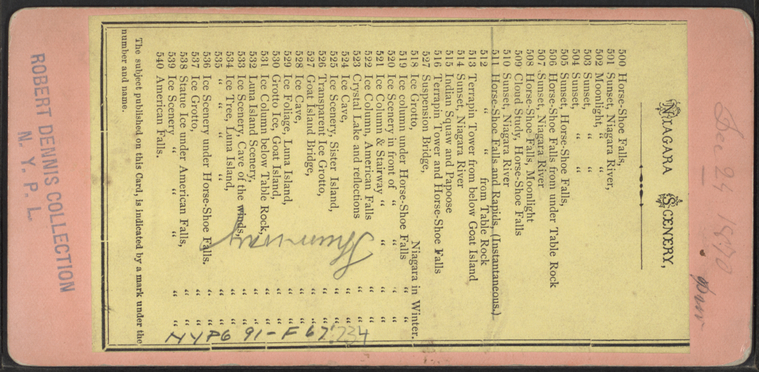 Dec 24 1870
NIAGARA SCENERY,
500 Horse-Shoe Falls,
501 Sunset, Niagara River,
502 Moonlight, " "
503 Sunset, " "
504 Sunset, " "
505 Sunset, Horse-Shoe Falls,
506 Horse-Shoe Falls from under Table Rock
507 Sunset, Niagara River
508 Horse-Shoe Falls, Moonlight
509 Cloud Study, Horse-Shoe Falls
510 Sunset, Niagara River
511 Horse-Shoe Falls and Rapids, (Instantaneous.)
512 " " from Table Rock
513 Terrapin Tower from below Goat Island
514 Sunset, Niagara River
515 Indian Squaw and Papoose
516 Terrapin Tower and Horse-Shoe Falls
527 Suspension Bridge,
518 Ice Grotto, Niagara in Winter.
519 Ice column under Horse-Shoe Falls "
520 Ice Scenery in front of " " "
521 Ice Column & Stairway " " "
522 Ice Column, American Falls "
523 Crystal Lake and reflections "
524 Ice Cave, " "
525 Ice Scenery, Sister Island, " "
526 Transparent Ice Grotto, " "
527 Goat Island Bridge, " "
528 Ice Cave, " "
529 Ice Foliage, Luna Island, " "
530 Grotto Ice, Goat Island, " "
531 Ice Column below Table Rock, " "
532 Luna Island Scenery, " "
533 Ice Scenery, Cave of the winds, " "
534 Ice Tree, Luna Island, " "
535 " " " " "
536 Ice Scenery under Horse-Shoe Falls. " "
537 Ice Grotto, " "
538 Statue Ice under American Falls, " "
539 Ice Scenery " " " "
540 American Falls. " "
NYPG 91-F67 734
The subject published on this Card, is indicated by a mark under the
number and name.
ROBERT DENNIS COLLECTION
N. Y. P. L.